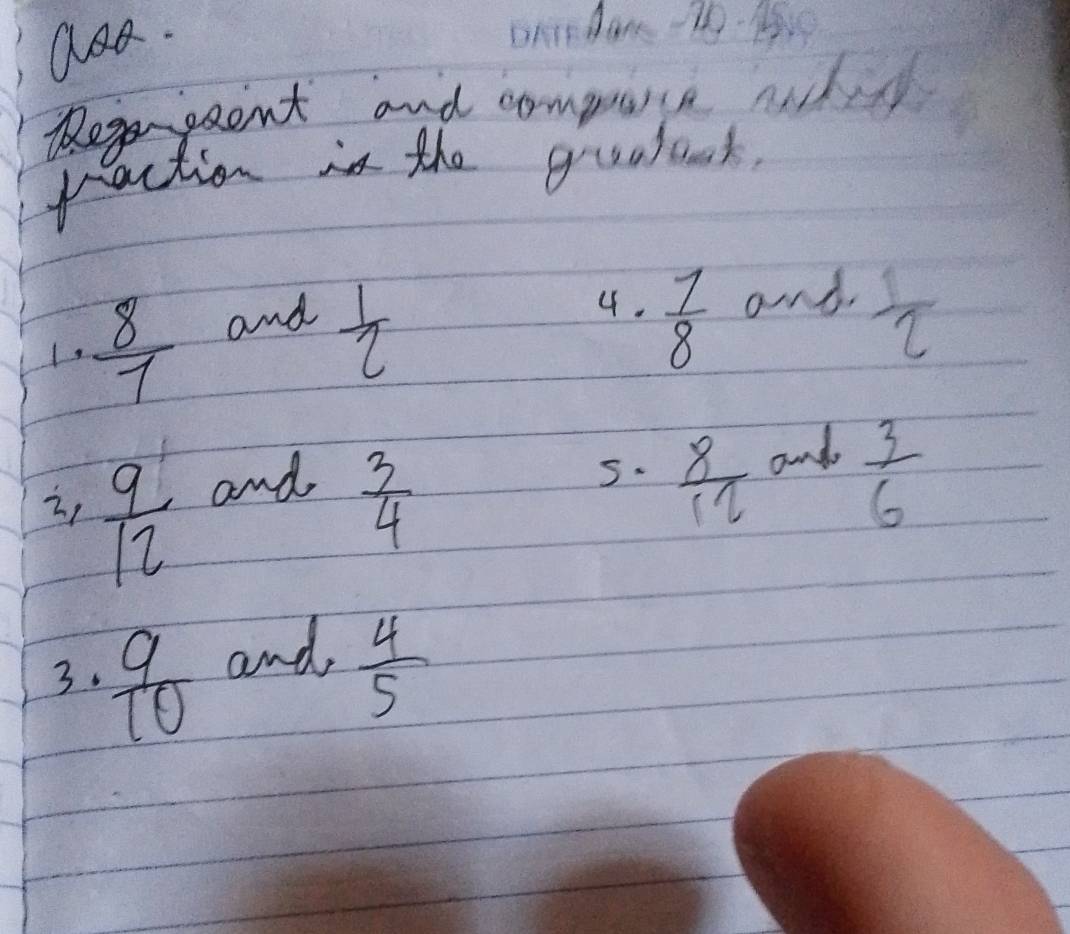 ass.
DATE Jan - 20 -
Represent and compare which
fraction is the greatest.
1. 8/7 and 1/2
2, 9/12 and 3/4
3. 9/10 and 4/5
4. 7/8 and 1/2
5. 8/12 and 3/6